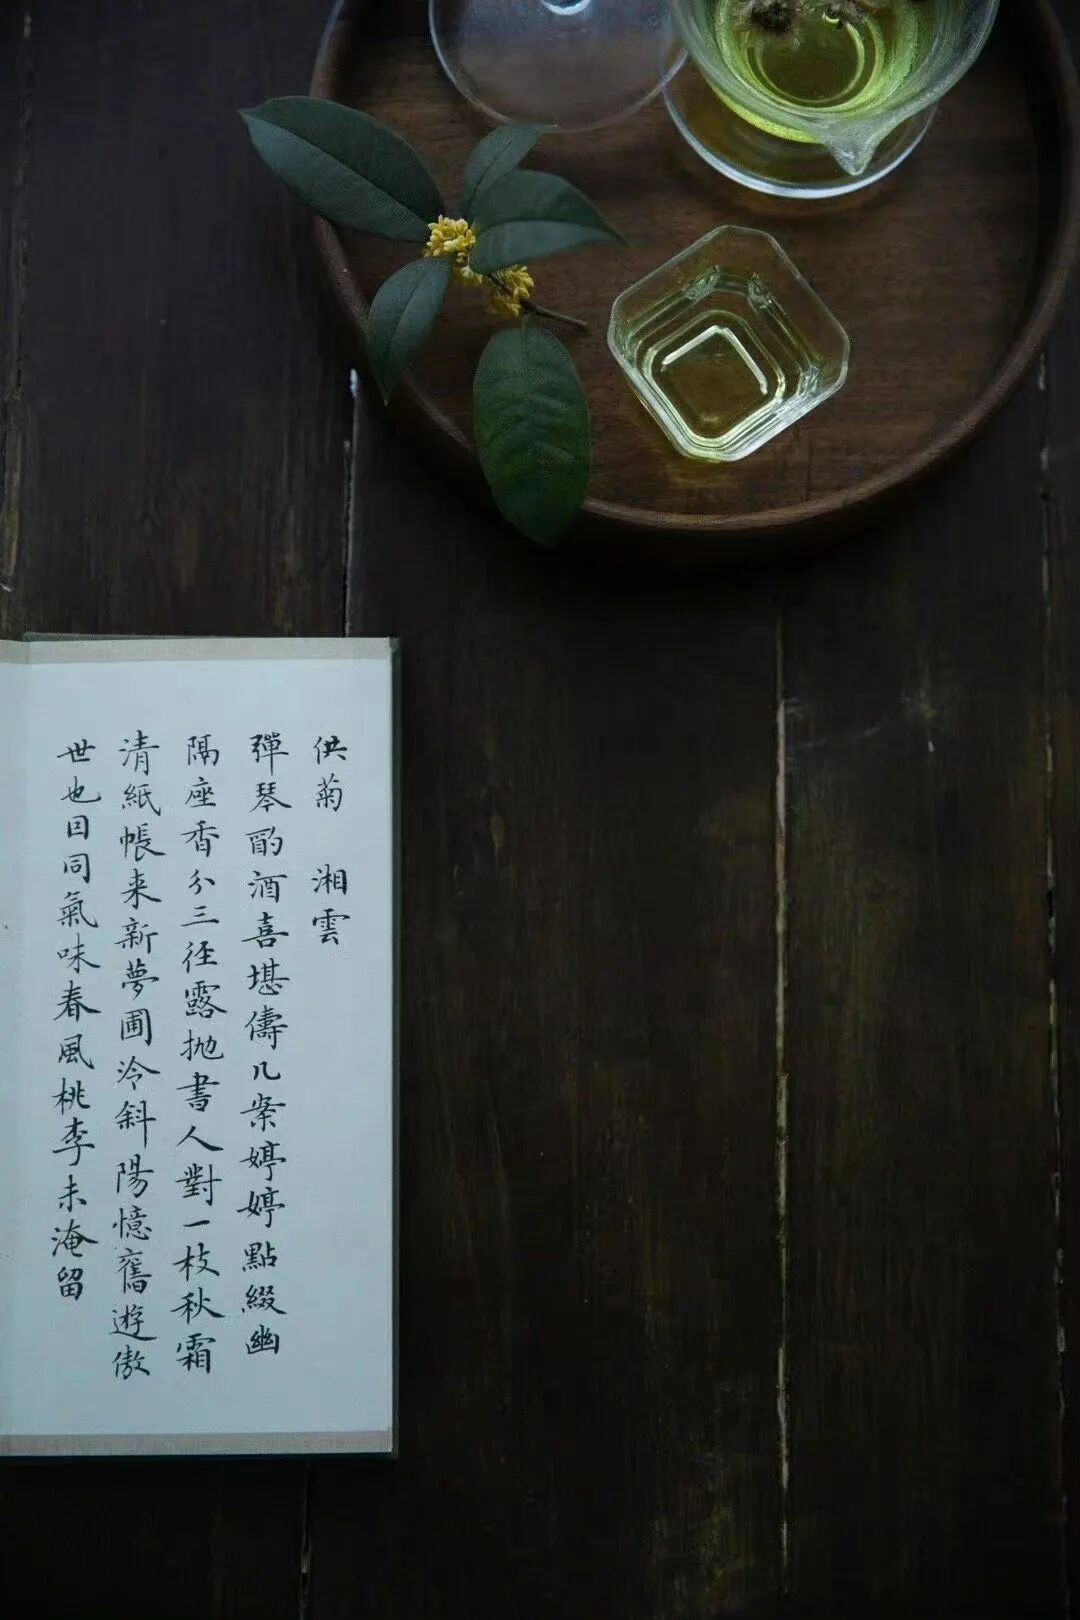 供菊 湘雲
彈琴酌酒喜堪儔几案婷婷點綴幽
隔座香分三徑露抛書人對一枝秋霜
清紙帳来新夢圃冷斜陽憶舊遊傲
世也因同氣味春風桃李未淹留